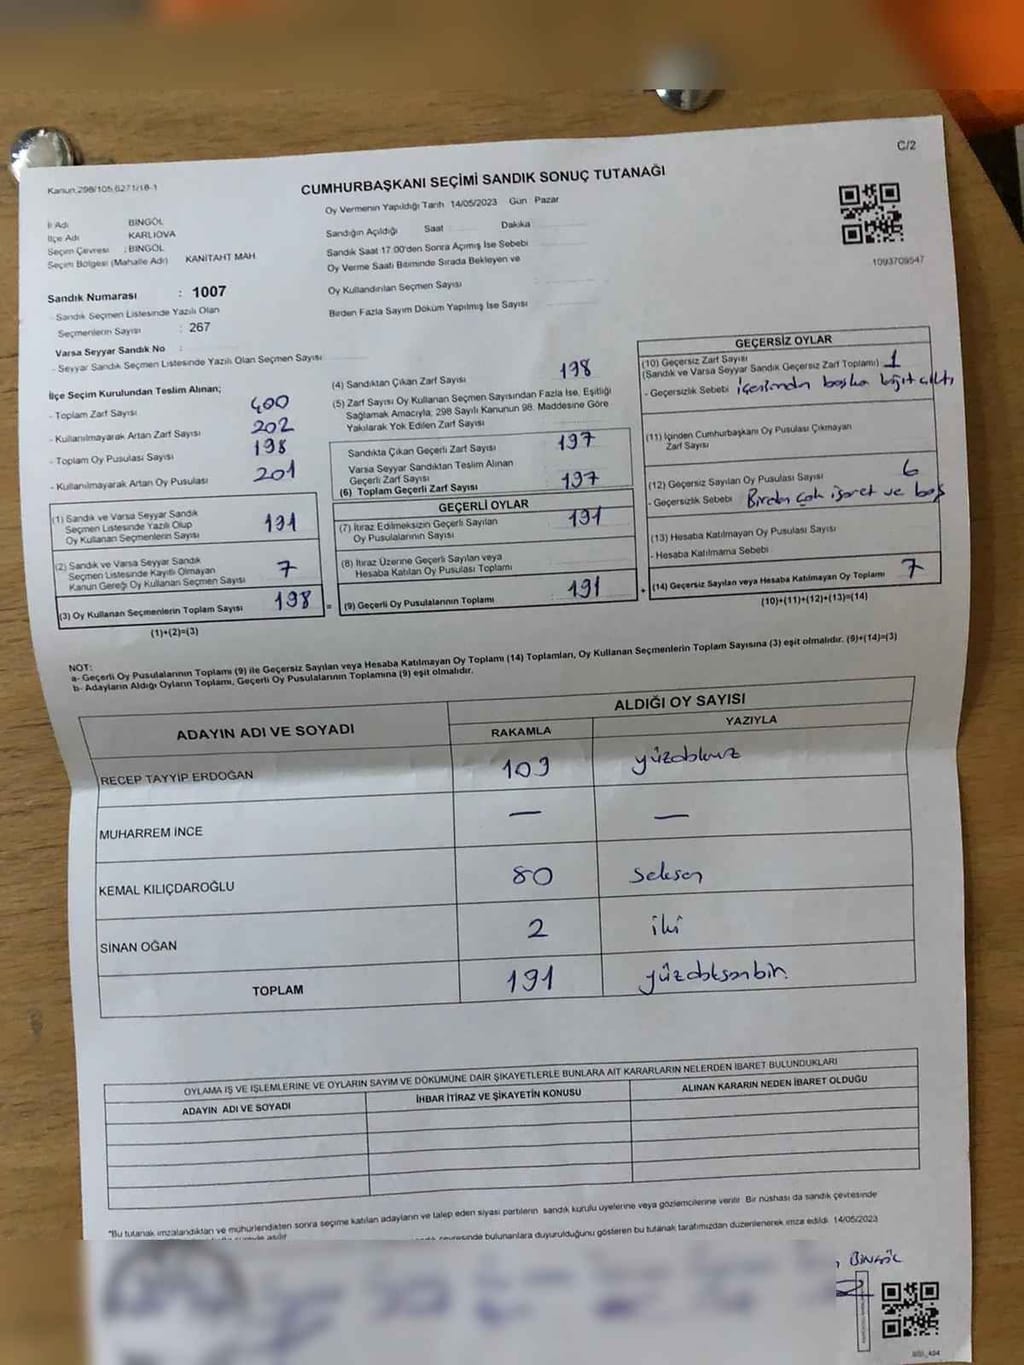 C/2
Kanun:298/105,6271/18-1
CUMHURBAŞKANI SEÇİMİ SANDIK SONUÇ TUTANAĞI
Oy Vermenin Yapıldığı Tarih 14/05/2023 Gün Pazar
İl Adı BİNGÖL
İlçe Adı KARLIOVA
Seçim Çevresi : BİNGÖL
Seçim Bölgesi (Mahalle Adı) KANİTAHT MAH
Sandığın Açıldığı Saat Dakika
Sandık Saat 17.00'den Sonra Açımış İse Sebebi
Oy Verme Saati Bitiminde Sırada Bekleyen ve
Oy Kullandırılan Seçmen Sayısı
Birden Fazla Sayım Döküm Yapılmış İse Sayısı
1093709547
Sandık Numarası : 1007
- Sandık Seçmen Listesinde Yazılı Olan
Seçmenlerin Sayısı : 267
Varsa Seyyar Sandık No :
- Seyyar Sandık Seçmen Listesinde Yazılı Olan Seçmen Sayısı
İlçe Seçim Kurulundan Teslim Alınan;
- Toplam Zarf Sayısı 400
- Kullanılmayarak Artan Zarf Sayısı 202
- Toplam Oy Pusulası Sayısı 198
- Kullanılmayarak Artan Oy Pusulası 201
(1) Sandık ve Varsa Seyyar Sandık
Seçmen Listesinde Yazılı Olup
Oy Kullanan Seçmenlerin Sayısı 191
(2) Sandık ve Varsa Seyyar Sandık
Seçmen Listesinde Kayıtlı Olmayan
Kanun Gereği Oy Kullanan Seçmen Sayısı 7
(3) Oy Kullanan Seçmenlerin Toplam Sayısı 198 =
(1)+(2)=(3)
(4) Sandıktan Çıkan Zarf Sayısı 198
(5) Zarf Sayısı Oy Kullanan Seçmen Sayısından Fazla İse, Eşitliği
Sağlamak Amacıyla, 298 Sayılı Kanunun 98. Maddesine Göre
Yakılarak Yok Edilen Zarf Sayısı
Sandıkta Çıkan Geçerli Zarf Sayısı 197
Varsa Seyyar Sandıktan Teslim Alınan
Geçerli Zarf Sayısı
(6) Toplam Geçerli Zarf Sayısı 197
GEÇERLİ OYLAR
(7) İtiraz Edilmeksizin Geçerli Sayılan
Oy Pusulalarının Sayısı 191
(8) İtiraz Üzerine Geçerli Sayılan veya
Hesaba Katılan Oy Pusulası Toplamı
(9) Geçerli Oy Pusulalarının Toplamı 191 +
GEÇERSİZ OYLAR
(10) Geçersiz Zarf Sayısı
(Sandık ve Varsa Seyyar Sandık Geçersiz Zarf Toplamı) 1
- Geçersizlik Sebebi içerisinden başka kağıt çıktı
(11) İçinden Cumhurbaşkanı Oy Pusulası Çıkmayan
Zarf Sayısı
(12) Geçersiz Sayılan Oy Pusulası Sayısı 6
- Geçersizlik Sebebi Birden çok işaret ve boş
(13) Hesaba Katılmayan Oy Pusulası Sayısı
- Hesaba Katılmama Sebebi
(14) Geçersiz Sayılan veya Hesaba Katılmayan Oy Toplamı 7
(10)+(11)+(12)+(13)=(14)
NOT:
a- Geçerli Oy Pusulalarının Toplamı (9) ile Geçersiz Sayılan veya Hesaba Katılmayan Oy Toplamı (14) Toplamları, Oy Kullanan Seçmenlerin Toplam Sayısına (3) eşit olmalıdır. (9)+(14)=(3)
b- Adayların Aldığı Oyların Toplamı, Geçerli Oy Pusulalarının Toplamına (9) eşit olmalıdır.
ADAYIN ADI VE SOYADI
ALDIĞI OY SAYISI
RAKAMLA YAZIYLA
RECEP TAYYİP ERDOĞAN 109 yüzdokuz
MUHARREM İNCE — —
KEMAL KILIÇDAROĞLU 80 seksen
SİNAN OĞAN 2 iki
TOPLAM 191 yüzdoksanbir.
OYLAMA İŞ VE İŞLEMLERİNE VE OYLARIN SAYIM VE DÖKÜMÜNE DAİR ŞİKAYETLERLE BUNLARA AİT KARARLARIN NELERDEN İBARET BULUNDUKLARI
ADAYIN ADI VE SOYADI İHBAR İTİRAZ VE ŞİKAYETİN KONUSU ALINAN KARARIN NEDEN İBARET OLDUĞU
*Bu tutanak imzalandıktan ve mühürlendikten sonra seçime katılan adayların ve talep eden siyasi partilerin sandık kurulu üyelerine veya gözlemcilerine verilir. Bir nüshası da sandık çevresinde
bulunanlara duyurulduğunu gösteren bu tutanak tarafımızdan düzenlenerek imza edildi. 14/05/2023
BİNGÖL